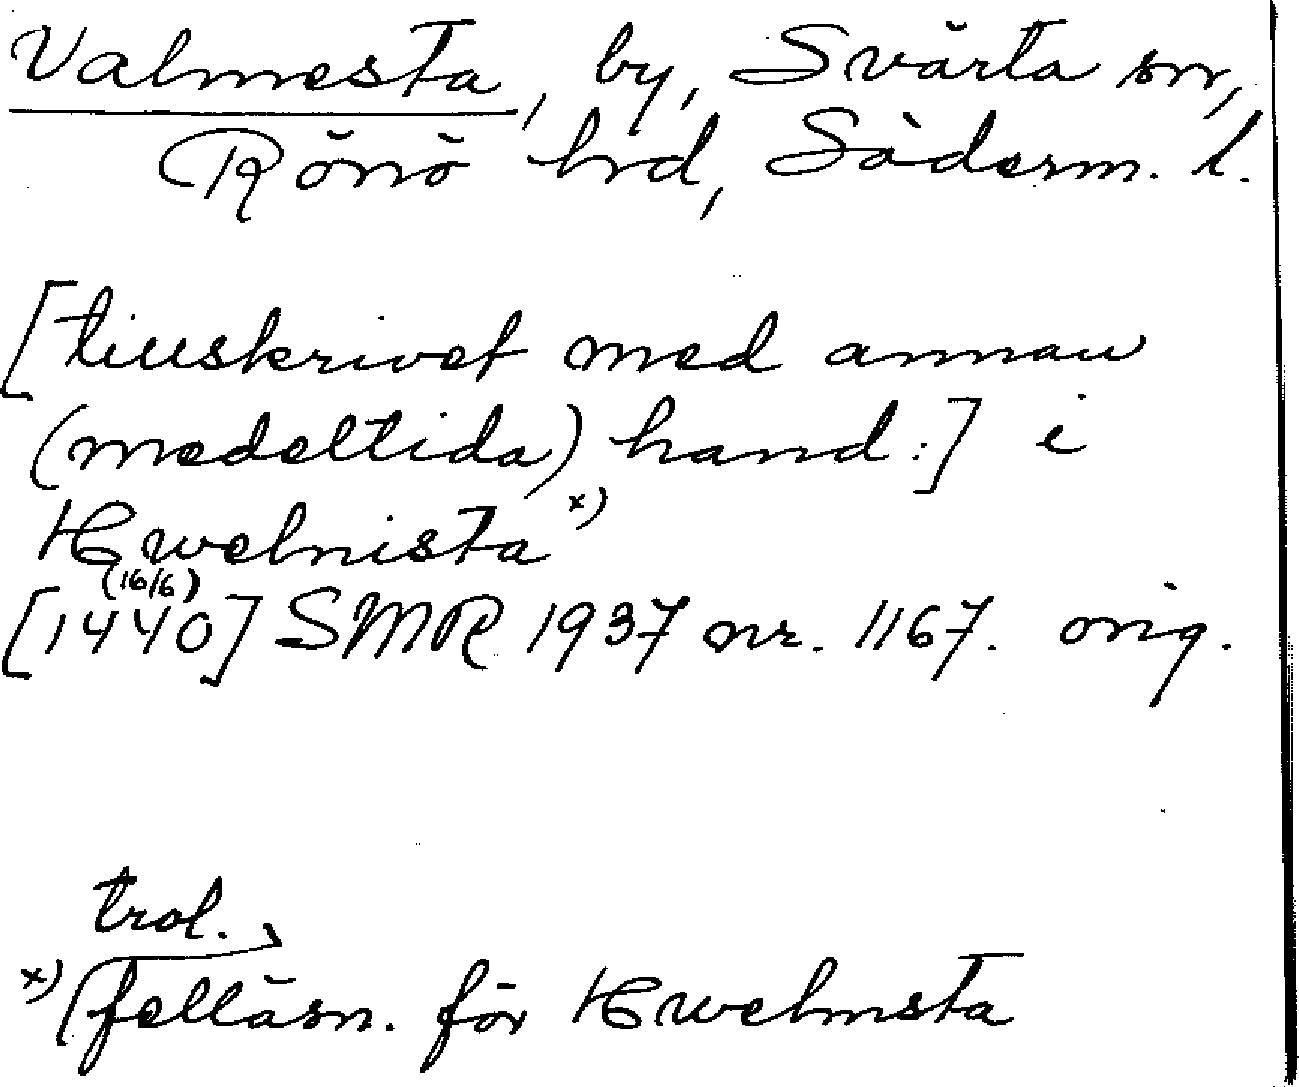 Valmesta, by, Svärta sn,
Rönö hd, Söderm. l.
[tillskrivet med annan
(medeltida) hand:] i
Hwelnista x)
(16/6)
[1440] SMR 1937 nr. 1167. orig.
trol.
x) felläsn. för Hwelmsta